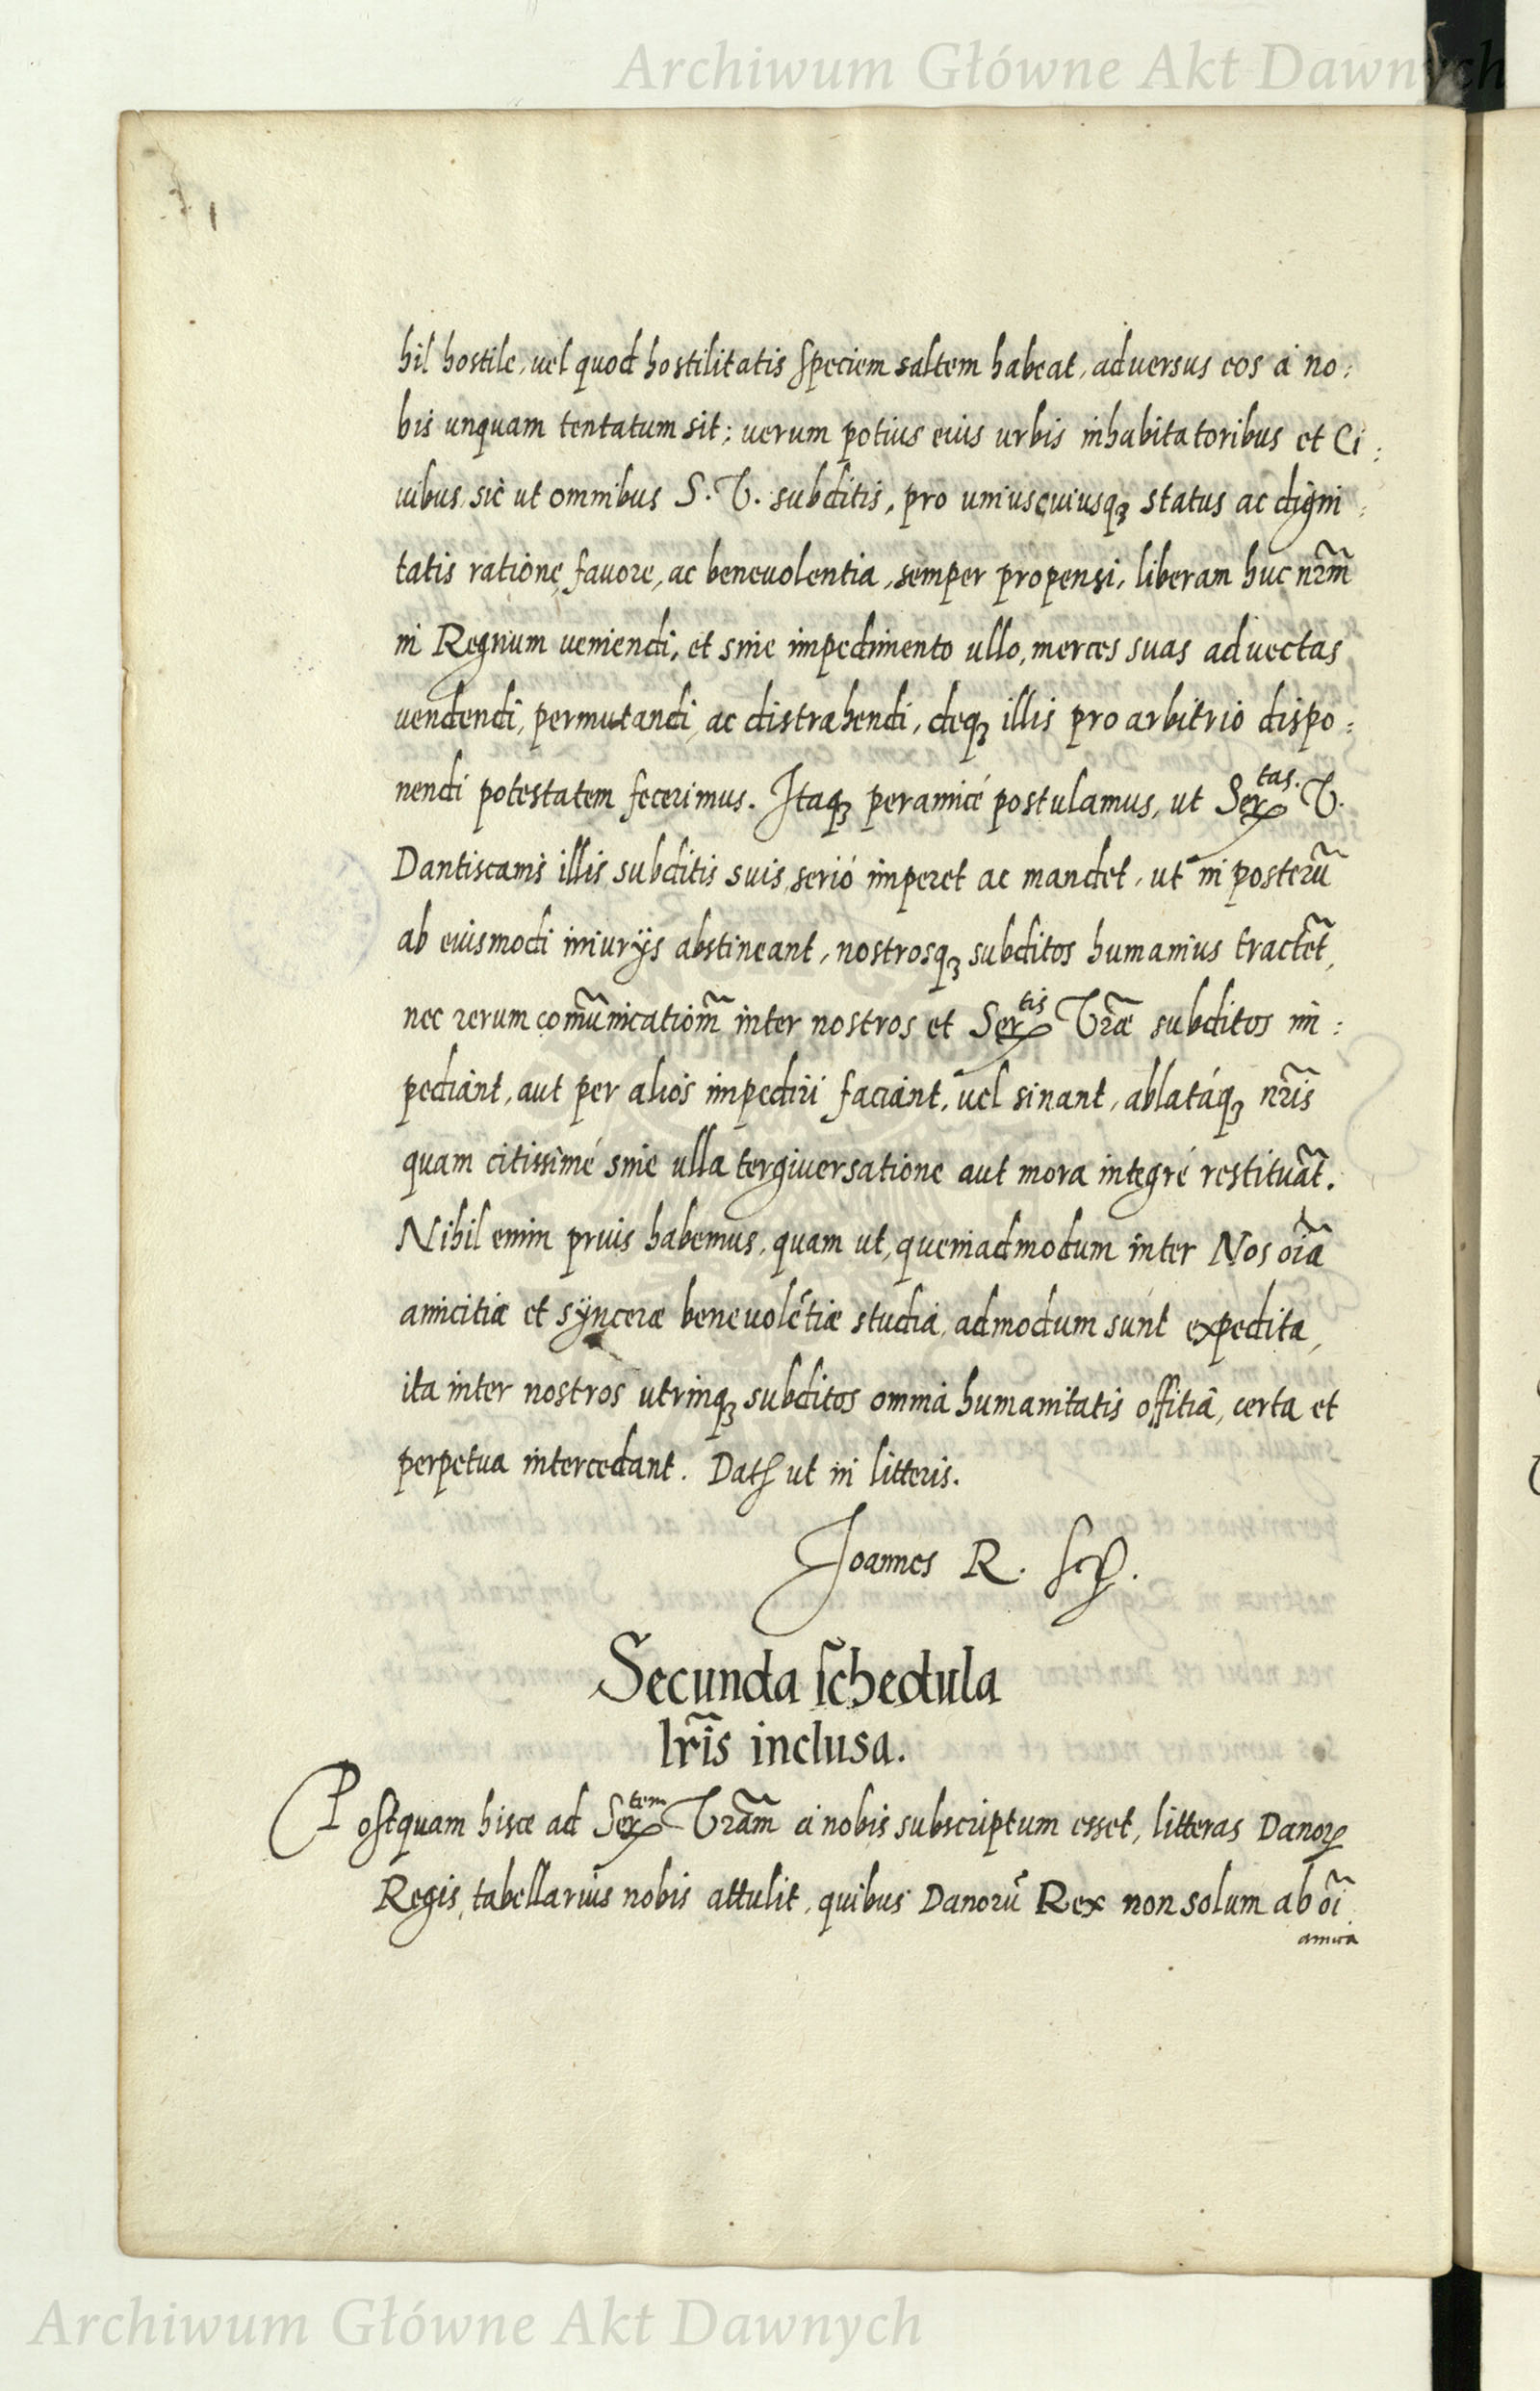 Archiwum Główne Akt Dawnych
hil hostile, uel quod hostilitatis speciem saltem habeat, aduersus eos à no:
bis unquam tentatum sit: uerum potius eius urbis inhabitatoribus et Ci:
uibus sic ut omnibus S. V. subditis, pro uniuscuiusqꝫ status ac digni:
tatis ratione, fauore, ac beneuolentia, semper propensi, liberam huc nr̃m
in Regnum ueniendi, et sine impedimento ullo, merces suas aduectas
uendendi, permutandi, ac distrahendi, deqꝫ illis pro arbitrio dispo:
nendi potestatem fecerimus. Itaqꝫ peramicé postulamus, ut Serᵗᵃˢ. V.
Dantiscanis illis subditis suis, serió imperet ac mandet, ut in posterũ
ab eiusmodi iniurijs abstineant, nostrosqꝫ subditos humanius tractẽt,
nec rerum com̃unicatiom̃ inter nostros et Serᵗⁱˢ Vr̃æ subditos im:
pediant, aut per alios impediri faciant, uel sinant, ablatáqꝫ nr̃is
quam citissimé sine ulla tergiuersatione aut mora integré restituãt.
Nihil enim prius habemus, quam ut, quemadmodum inter Nos oĩa
amicitiæ et sÿnceræ beneuolẽtiæ studia, admodum sunt expedita,
ita inter nostros utrinqꝫ subditos omnia humanitatis offitia, certa et
perpetua intercedant. Dat ut in litteris.
Joannes R. sspt.
Secunda schedula
lr̃is inclusa.
Postquam hisce ad Serᵗᵉᵐ Vr̃am à nobis subscriptum esset, litteras Danoꝝ
Regis, tabellarius nobis attulit, quibus Danorũ Rex non solum ab oĩ
amica
Archiwum Główne Akt Dawnych